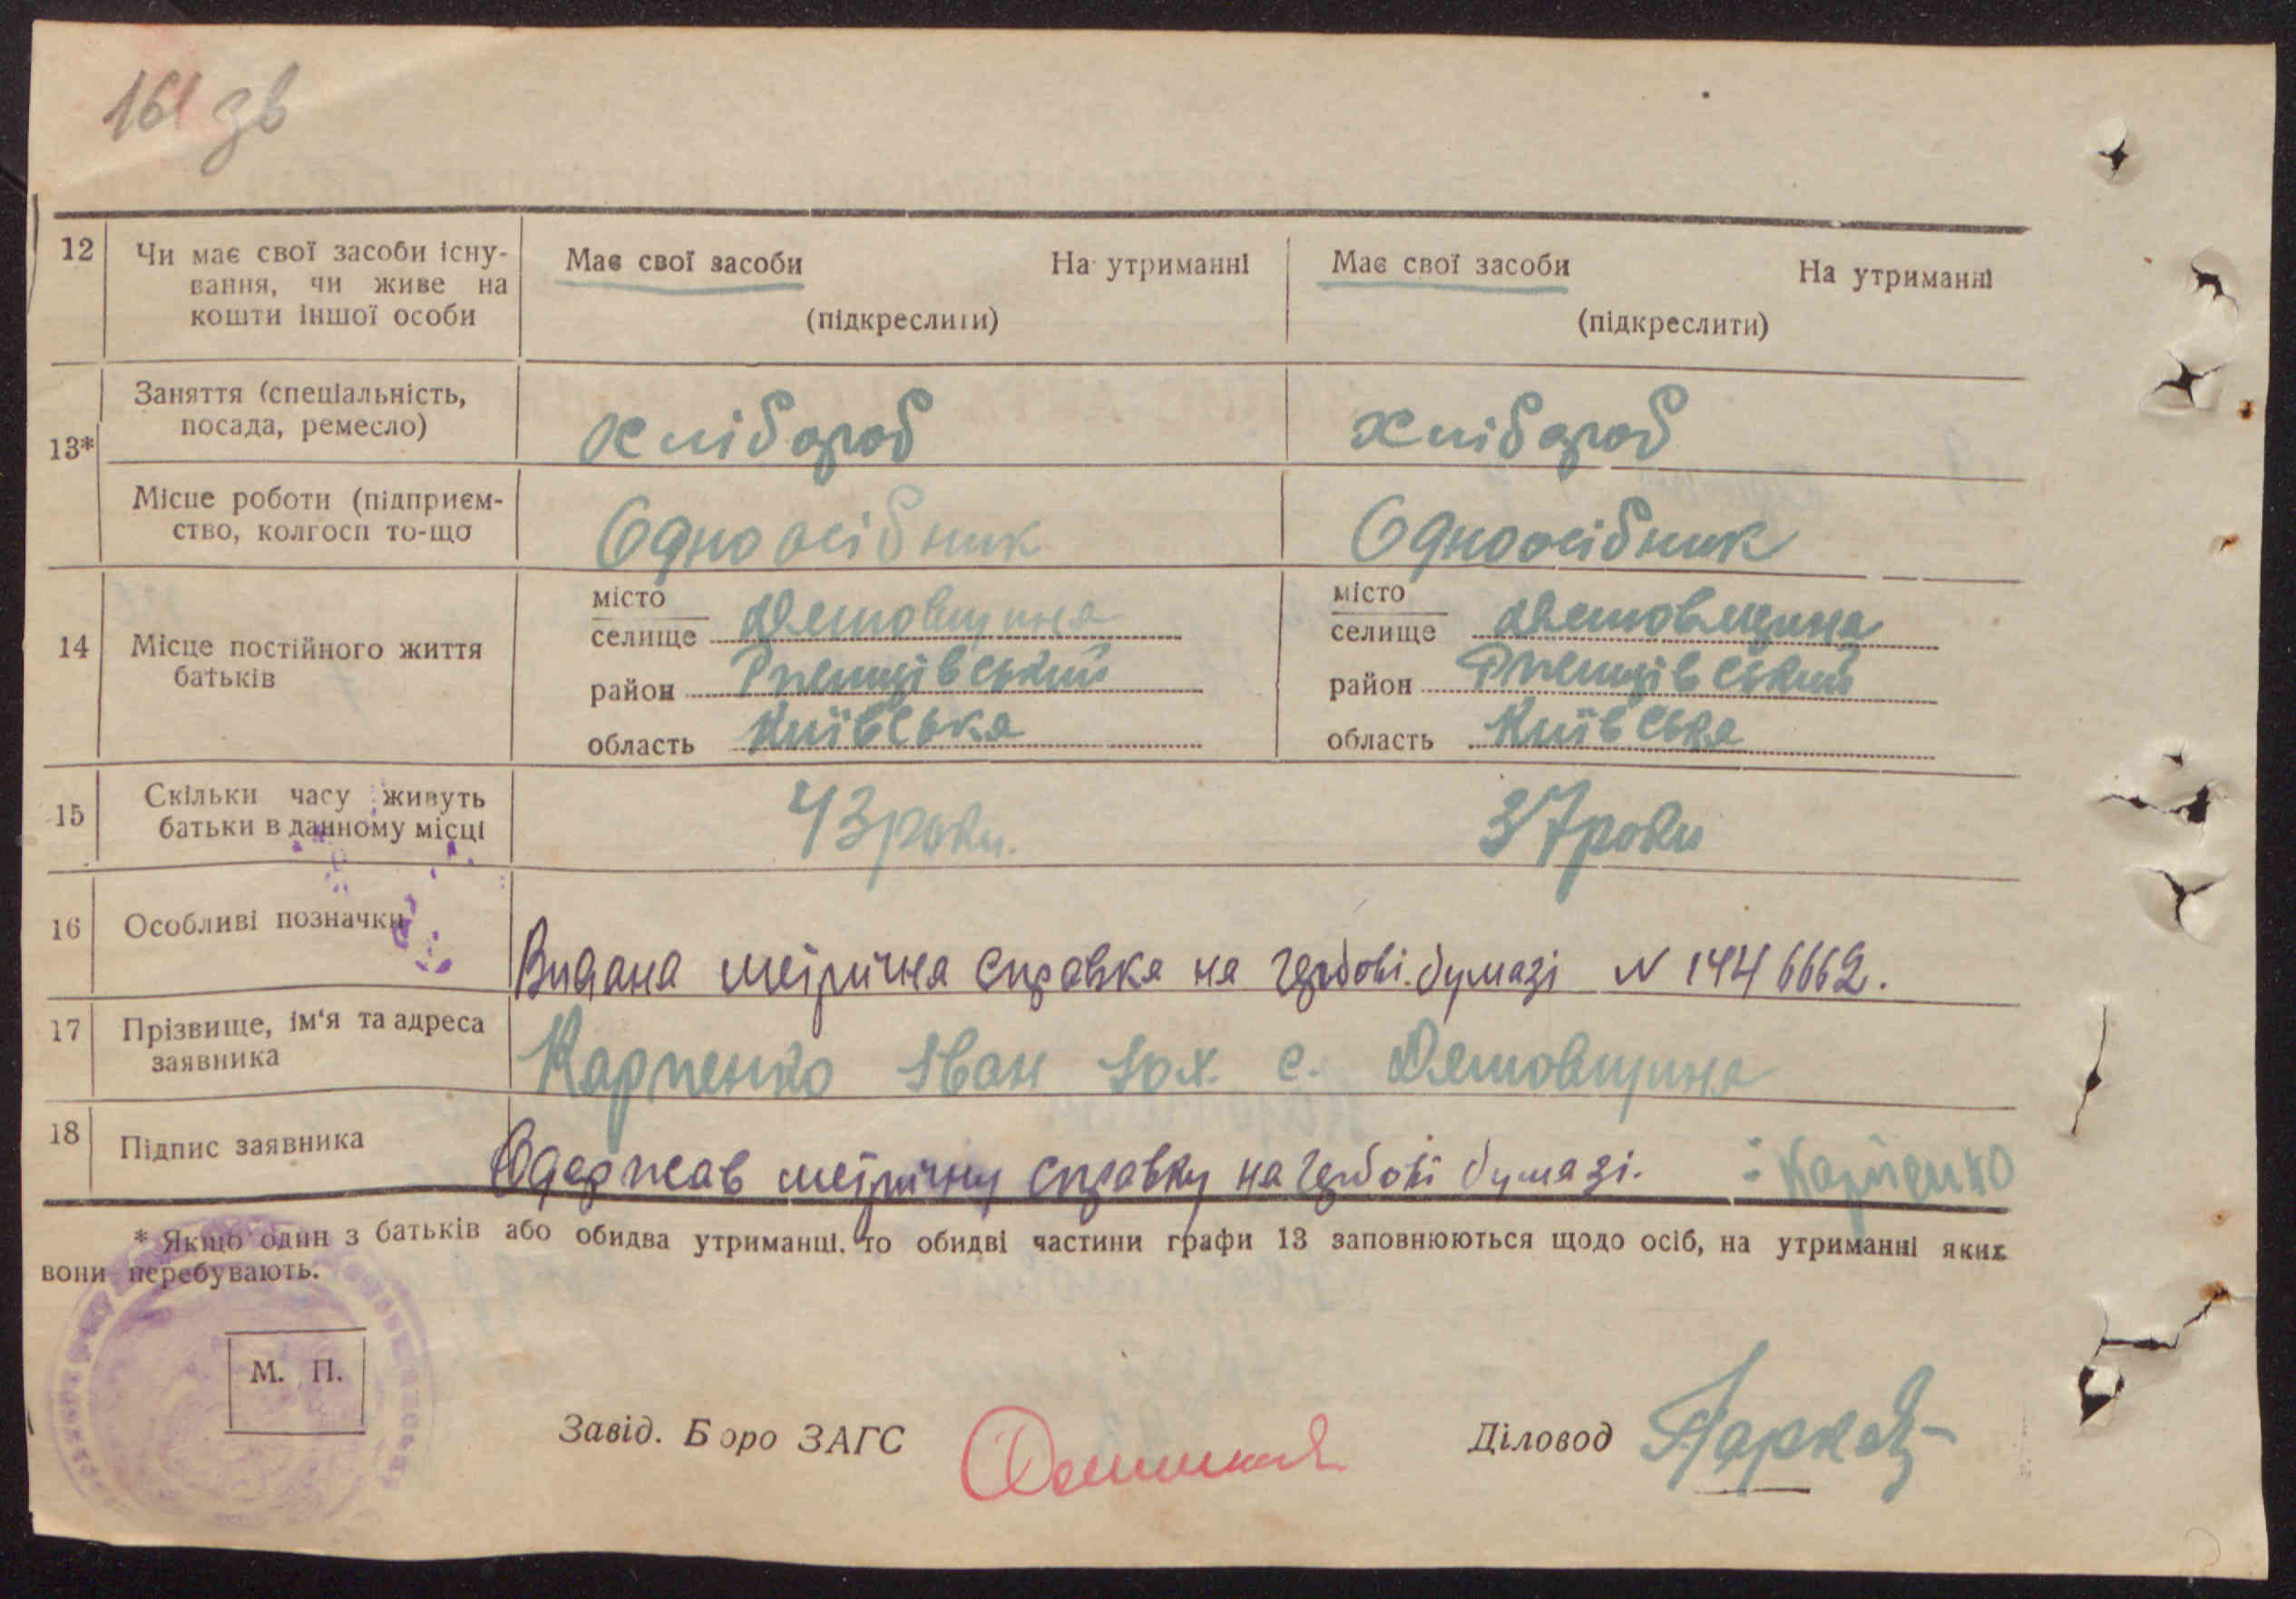 161 зв
12 Чи має свої засоби існу-
вання, чи живе на
кошти іншої особи
Має свої засоби На утриманні
(підкреслити)
Має свої засоби На утриманні
(підкреслити)
13*
Заняття (спеціальність,
посада, ремесло)
хлібороб
хлібороб
Місце роботи (підприєм-
ство, колгосп то-що
Одноосібник
Одноосібник
14 Місце постійного життя
батьків
місто
селище
район Ржищівський
область Київська
місто
селище
район Ржищівський
область Київська
15 Скільки часу живуть
батьки в данному місці
43 роки.
37 роки
16 Особливі позначки
Видана метрична справка на гербові. бумазі N 1446662.
17 Прізвище, ім'я та адреса
заявника
Карпенко Іван с.
18 Підпис заявника
Одержав метричну справку на гербові бумазі. : Карпенко
* Якщо один з батьків або обидва утриманці, то обидві частини графи 13 заповнюються щодо осіб, на утриманні яких
вони перебувають.
М. П.
Завід. Бюро ЗАГС
Діловод